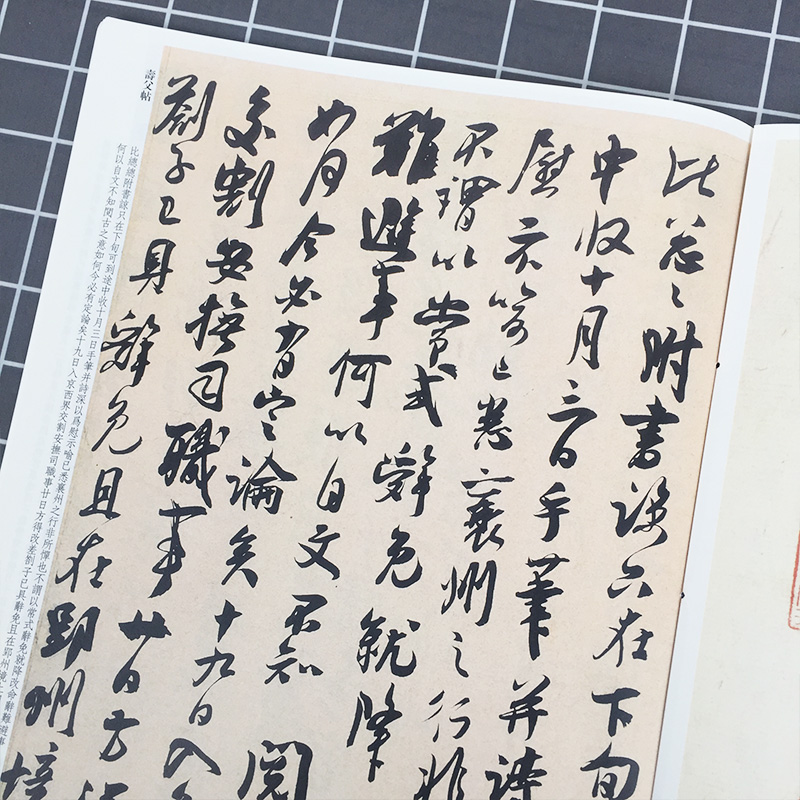 比忩忩附書諒只在下旬
中收十月三日手筆并詩
慰示喻已悉襄州之行非
不謂以常式辭免就降
難避事何以自文不知閱
如何今必有定論矣十九日入
交割安撫司職事廿日方得
劄子已具辭免且在郢州境
壽父帖
比總總附書諒只在下旬可到途中收十月三日手筆并詩深以爲慰示喻已悉襄州之行非所憚也不謂以常式辭免就降改命辭難避事
何以自文不知閱古之意如何今必有定論矣十九日入京西界交割安撫司職事廿日方得改差劄子已具辭免且在郢州境上